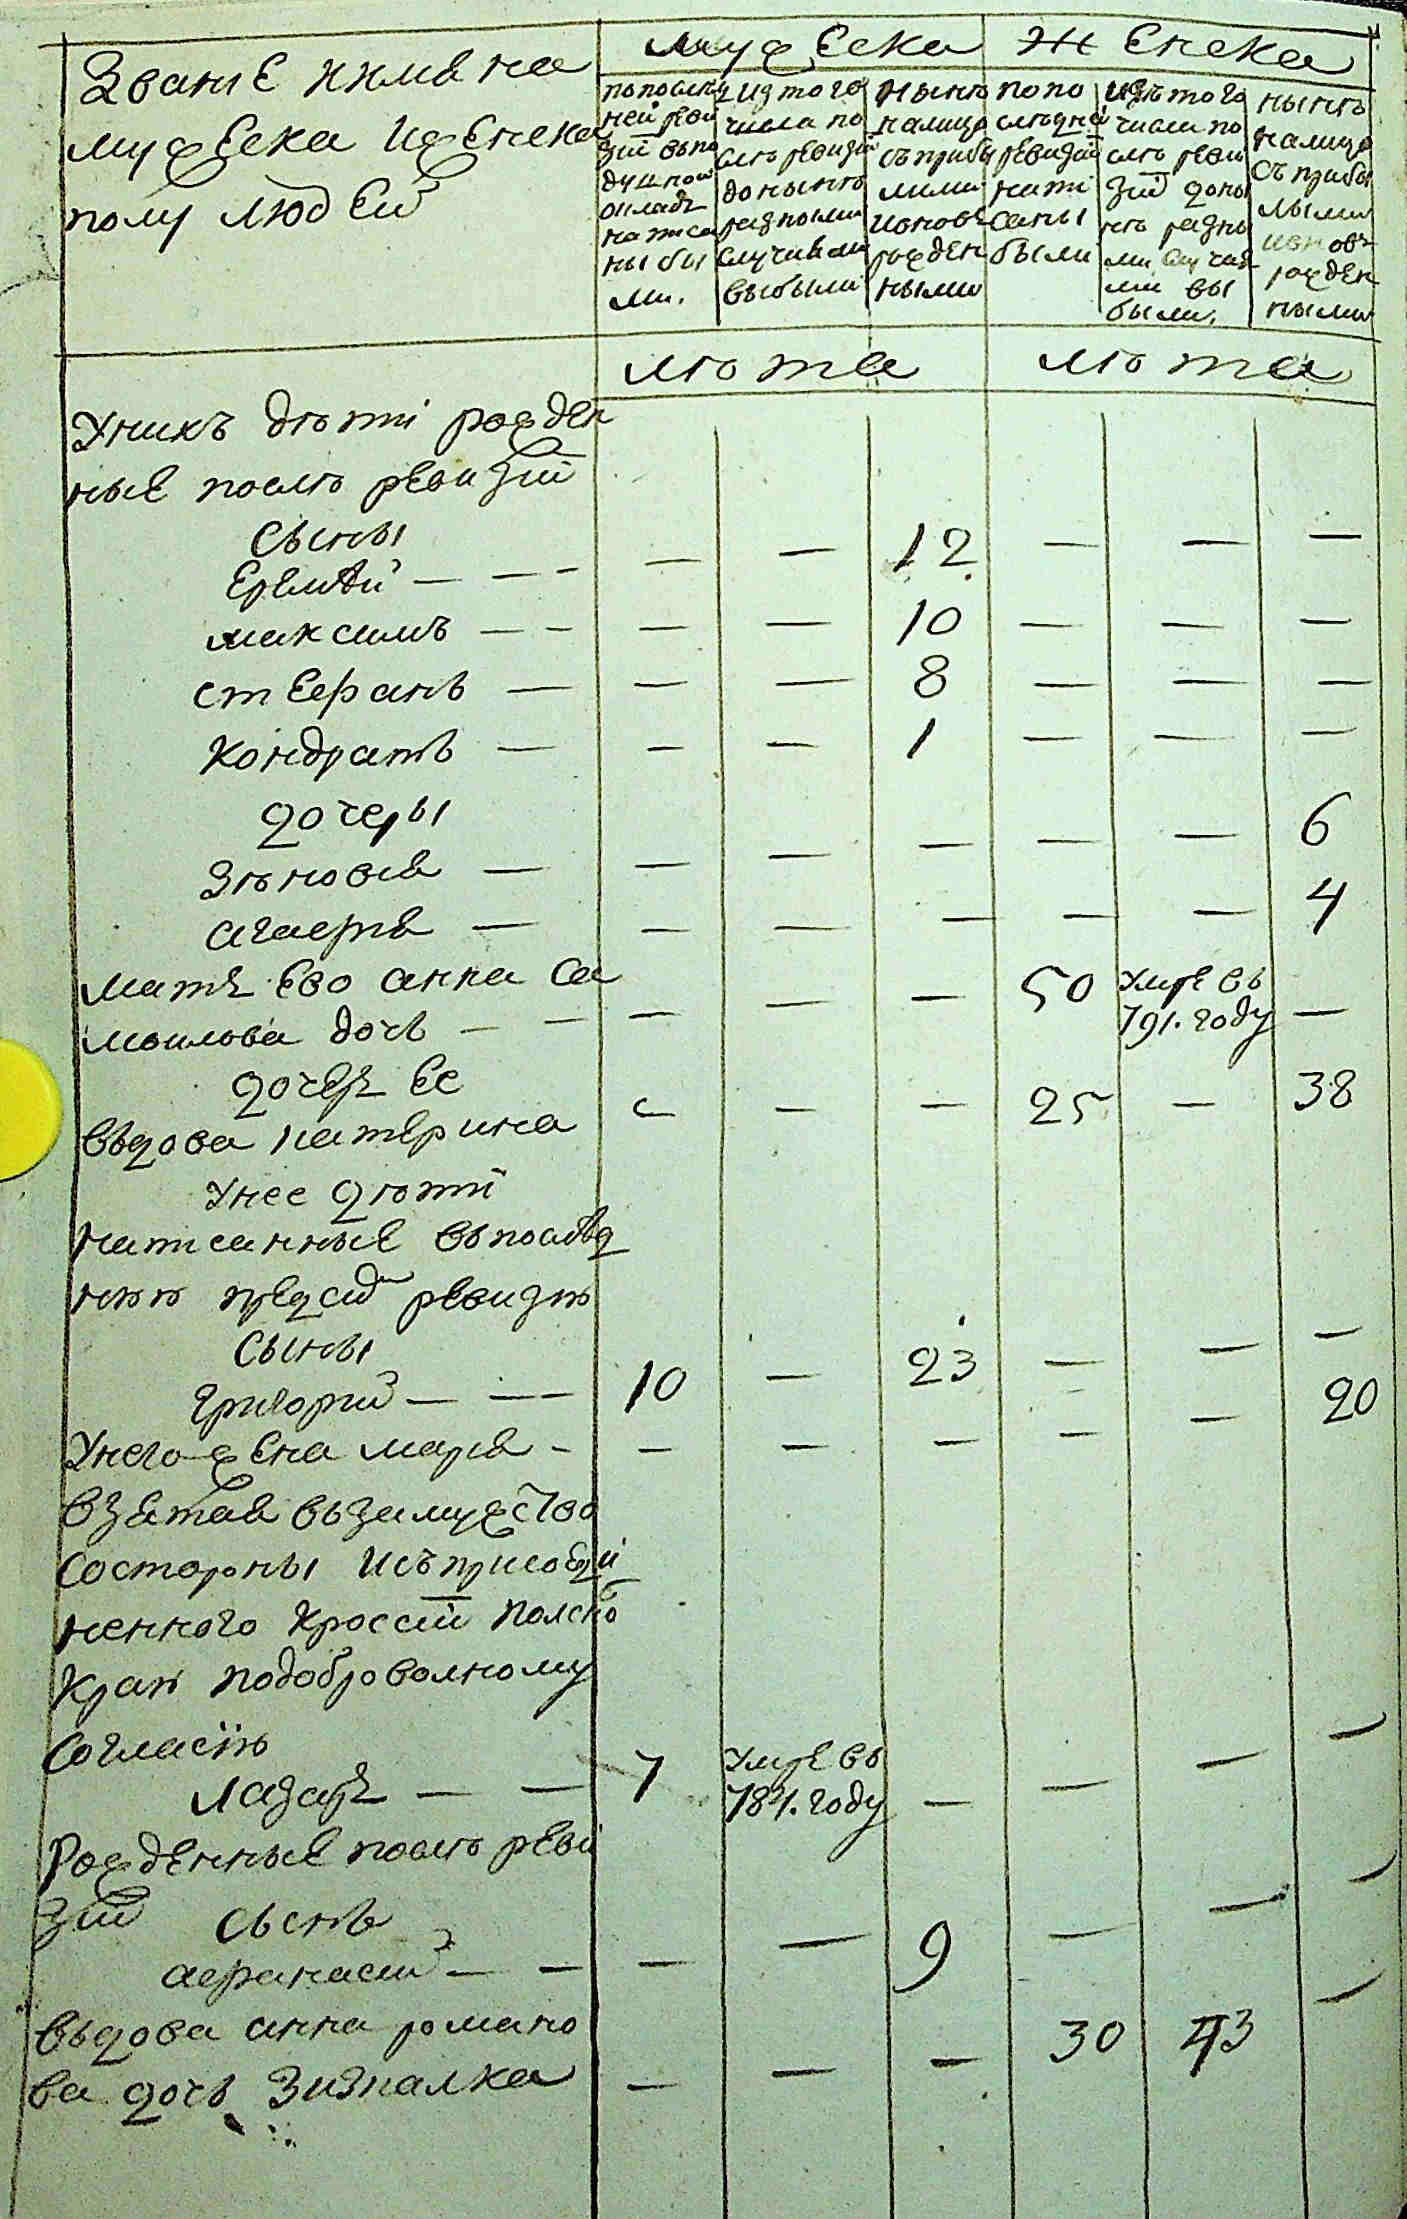 Званіе иимена
мужеска ижеиска
полу людей
мужеска
женска
попослед
ней реви
зіи въпо
душном
окладъ
написа
ны бы
ли.
изтого
числа по
слѣ ревизіи
донынѣ
разными
случаями
выбыли
нынѣ
налицо
съприбы
лыми
ивновь
рожден
ными
попо
слѣдней
ревизіи
напи
саны
были
изътого
числа по
слѣ реви
зіи доны
нѣ разны
ми случая
ми вы
были.
нынѣ
налицо
съприбы
лыми
ивновь
рожден
ными
лѣта
лѣта
Унихъ дѣти рожден
ные послѣ ревизіи
сыны
Еремѣй — — — — — 12 — — —
максимъ — — — — 10 — — —
стефанъ — — — 8 — — —
Кондратъ — — — 1 — — —
дочеры
Зѣновія — — — — — — 6
агафія — — — — — — 4
мать Его анна са
моилова дочь — — — — — 50 умре въ 791. году —
дочерь Ее
въдова катерина — — — 25 — 38
Унее дѣти
написанные впослѣд
нѣй предъ сей ревизіи
сыны
григорій — — — 10 — 23 — — —
Унего жена марія — — — — — — 20
взятая взамужство
состороны исъприсоеди
неннаго Кроссіи полско
Краю подоброволному
согласію
лазарь — — 7 умре въ 784. году — — — —
Рожденные послѣ реви
зіи сынъ
афанасій — — — — 9 — — —
въдова анна романо
ва дочь Зизпалка — — — 30 43 —